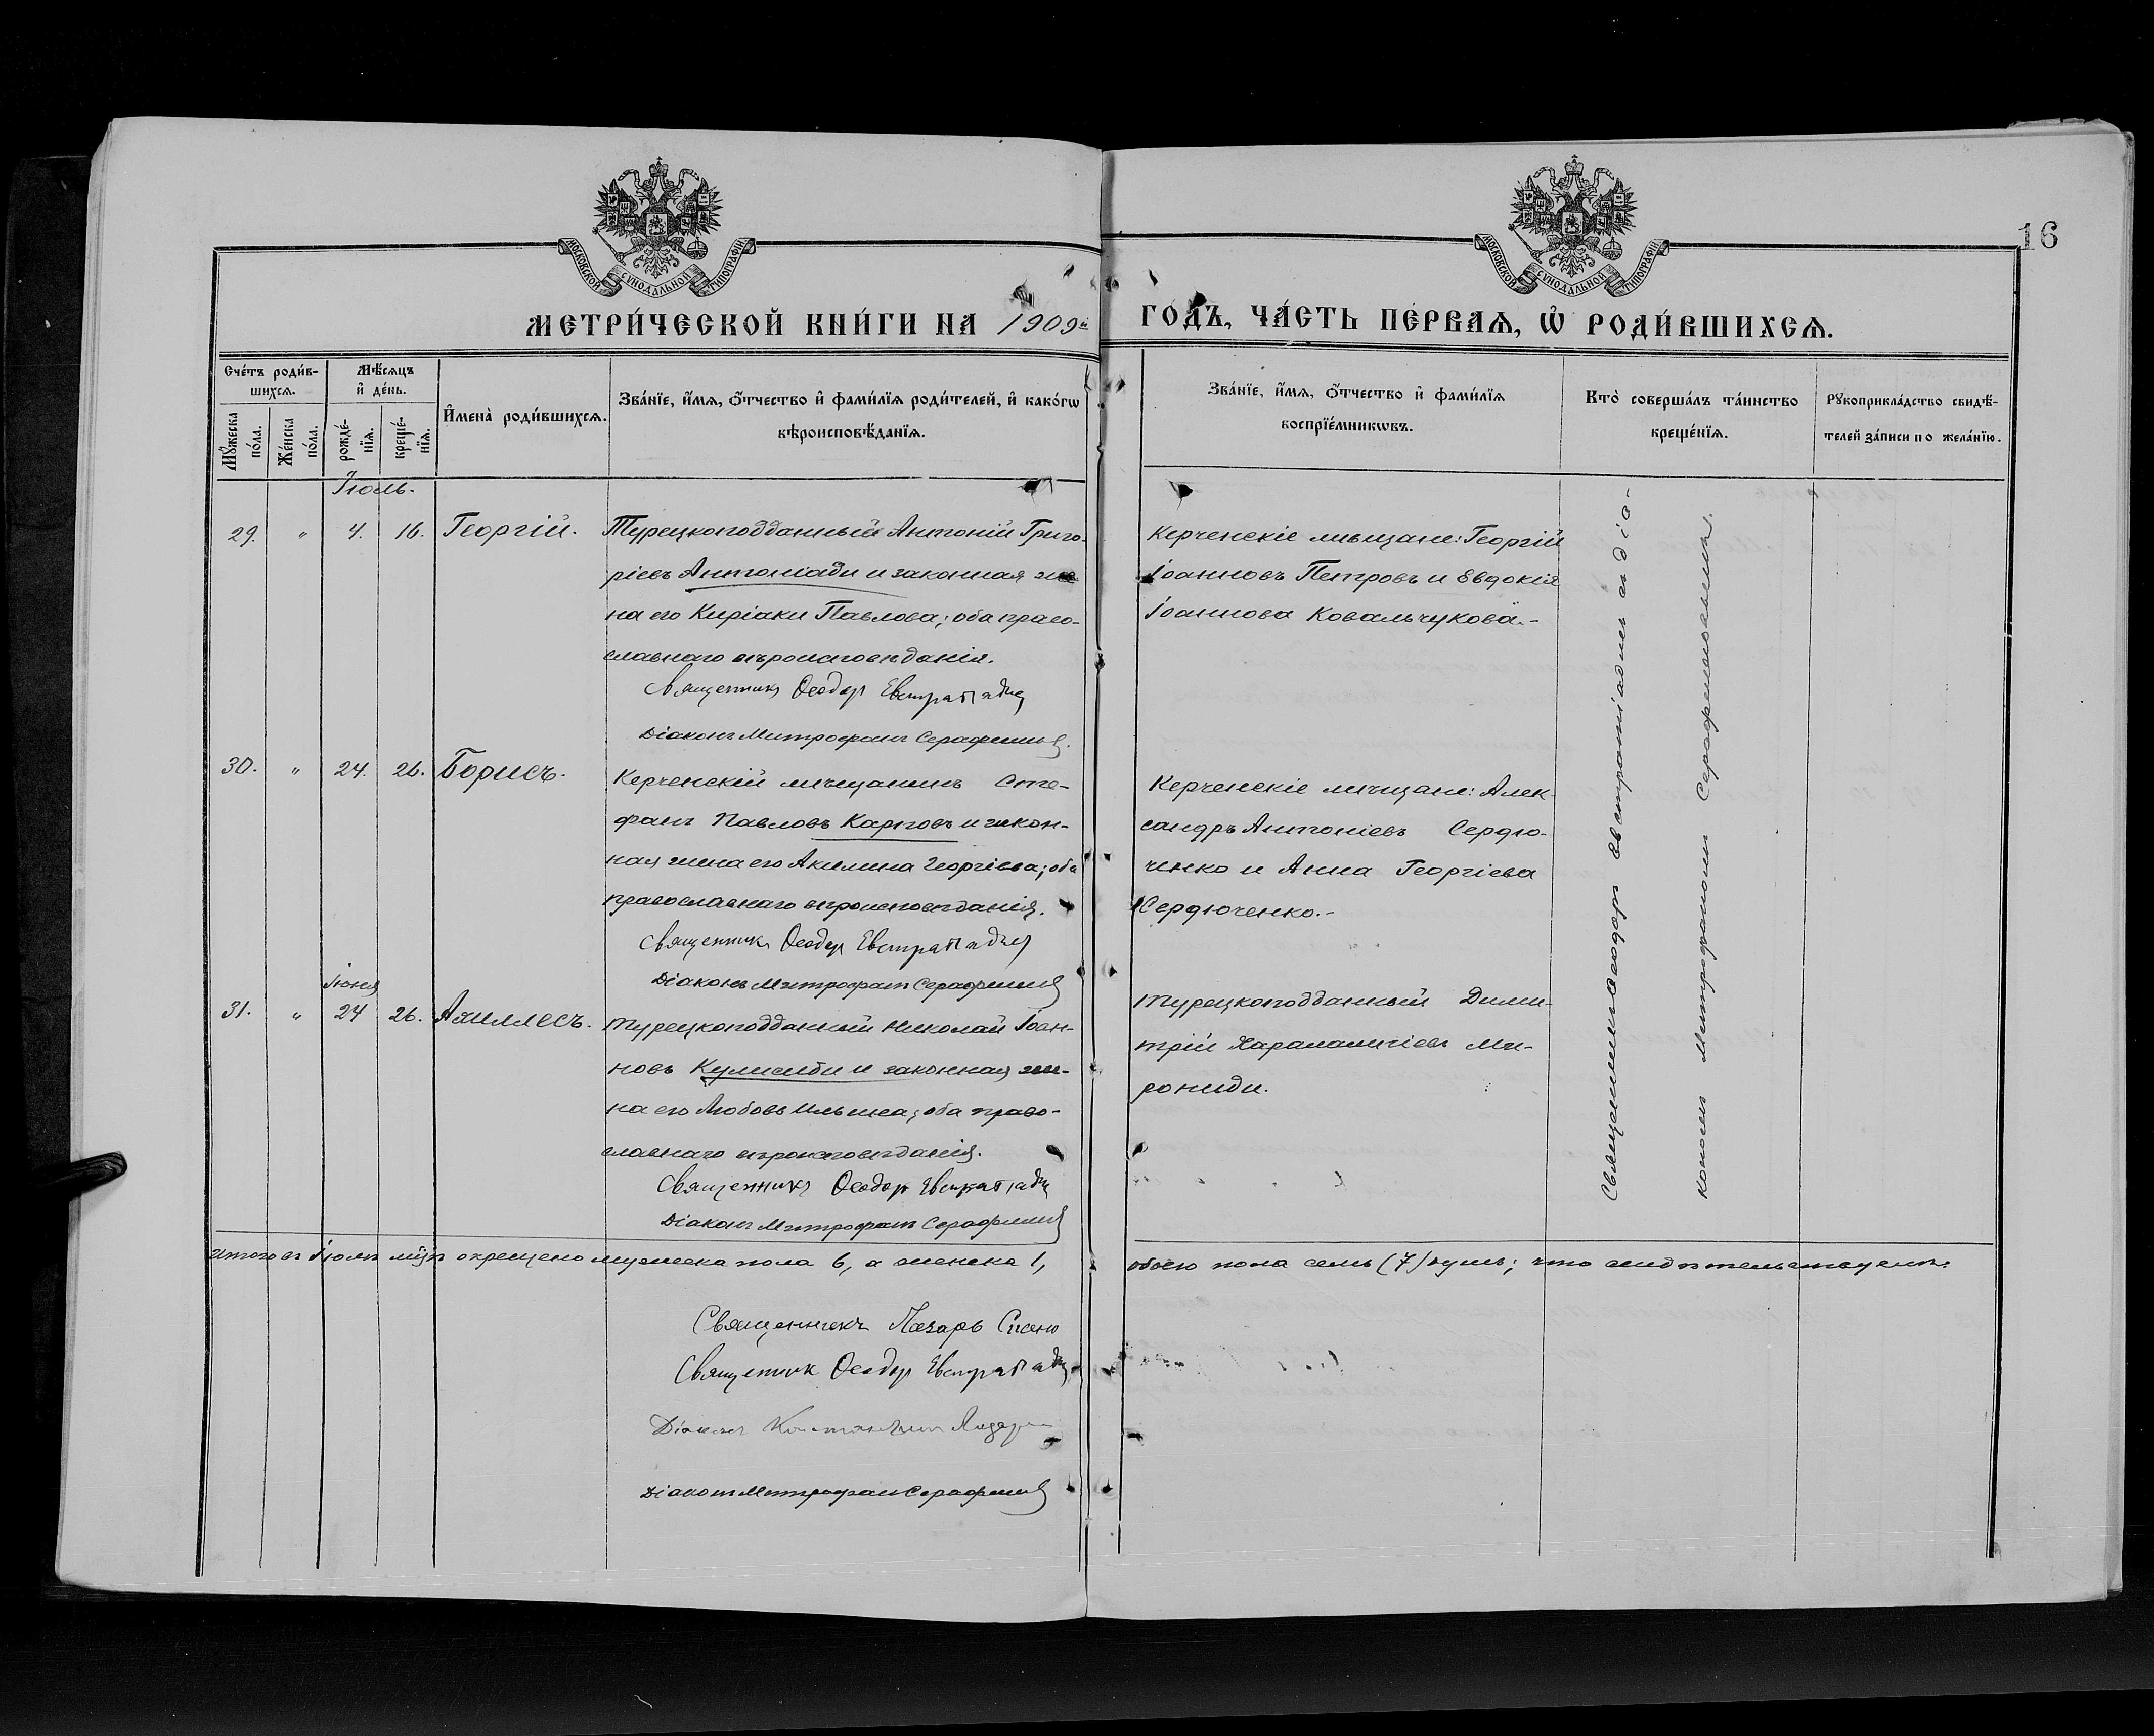 16
МОСКОВСКОЙ СѴНОДАЛЬНОЙ ТИПОГРАФІИ
МОСКОВСКОЙ СѴНОДАЛЬНОЙ ТИПОГРАФІИ
МЕТРИ́ЧЕСКОЙ КНИ́ГИ НА 1909й ГОДЪ, ЧА́СТЬ ПЕ́РВАѦ, Ѡ҆ РОДИ́ВШИХСѦ.
Сче́тъ роди́в-
шихсѧ.
Мѣ́сяцъ
и҆ де́нь.
Мꙋжеска
по́ла.
Же́нска
по́ла.
рожде́-
нїѧ.
креще́-
нїѧ.
И҆мена̀ роди́вшихсѧ.
Зва́нїе, и҆́мѧ, ѻ҆́тчество и҆ фами́лїѧ роди́телей, и҆ како́гѡ
вѣроисповѣ́данїѧ.
Зва́нїе, и҆́мѧ, ѻ҆́тчество и҆ фами́лїѧ
воспрїе́мникѡвъ.
Кто̀ соверша́лъ та́инство
креще́нїѧ.
Рꙋкоприкла́дство свидѣ́-
телей за́писи по жела́нїю.
Іюль.
29. " 4. 16. Георгій.
Турецкоподданный Антоній Григо-
ріевъ Антоніади и законная же-
на его Киріаки Павлова; оба право-
славнаго вѣроисповѣданія.
Священникъ Ѳеодоръ Евстратіадисъ
Діаконъ Митрофанъ Серафимовъ.
Керченскіе мѣщане: Георгій
Іоанновъ Петровъ и Евдокія
Іоаннова Ковальчукова.-
30. " 24. 26. Борисъ.
Керченскій мѣщанинъ Сте-
фанъ Павловъ Карповъ и закон-
ная жена его Акилина Георгіева; оба
православнаго вѣроисповѣданія.
Священникъ Ѳеодоръ Евстратіадисъ
Діаконъ Митрофанъ Серафимовъ
Керченскіе мѣщане: Алек-
сандръ Антоніевъ Сердю-
ченко и Анна Георгіева
Сердюченко.-
Іюня
31. " 24 26. Ахиллесъ.
Турецкоподданный Николай Іоан-
новъ и законная же-
на его Любовь Ильина; оба право-
славнаго вѣроисповѣданія.
Священникъ Ѳеодоръ Евстратіадисъ
Діаконъ Митрофанъ Серафимовъ
Турецкоподданный Дими-
трій Харалампіевъ Ми-
рониди.
Священникъ Ѳеодоръ Евстратіадисъ съ діа-
кономъ Митрофаномъ Серафимовымъ.
Итого въ Іюлѣ мцѣ окрещено мужеска пола 6, а женска 1, обоего пола семь (7) душъ; что свидѣтельствуемъ:
Священникъ Лазарь
Священникъ Ѳеодоръ Евстратіадисъ
Діаконъ Константинъ
Діаконъ Митрофанъ Серафимовъ